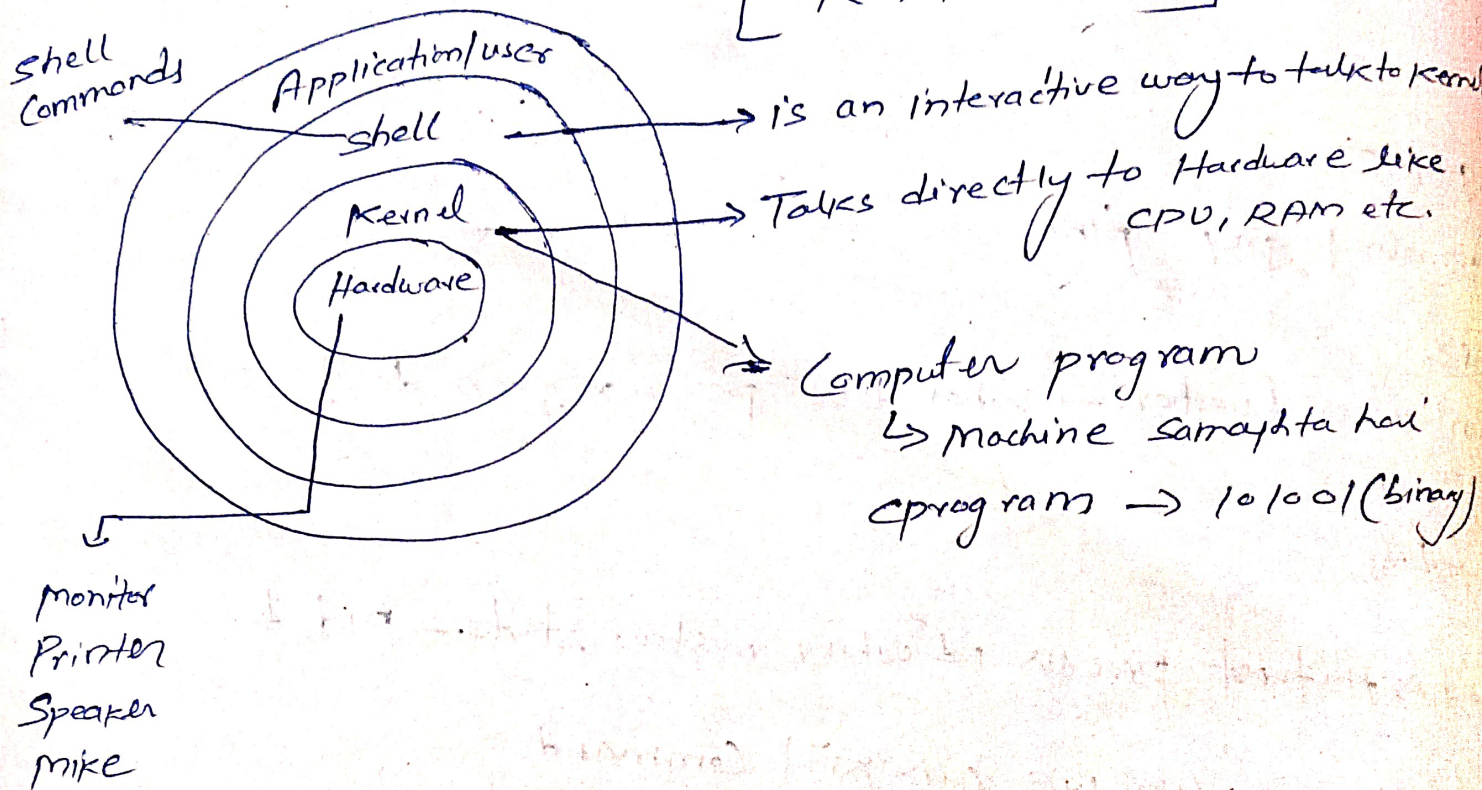 Shell
Commands
Application/user
Shell
→ is an interactive way to talk to
Kernel
→ Talks directly to Hardware like
CPU, RAM etc.
Hardware
Computer program
↳ Machine samajhta hai
cprogram → 101001 (binary)
Moniter
Printer
Speaker
Mike